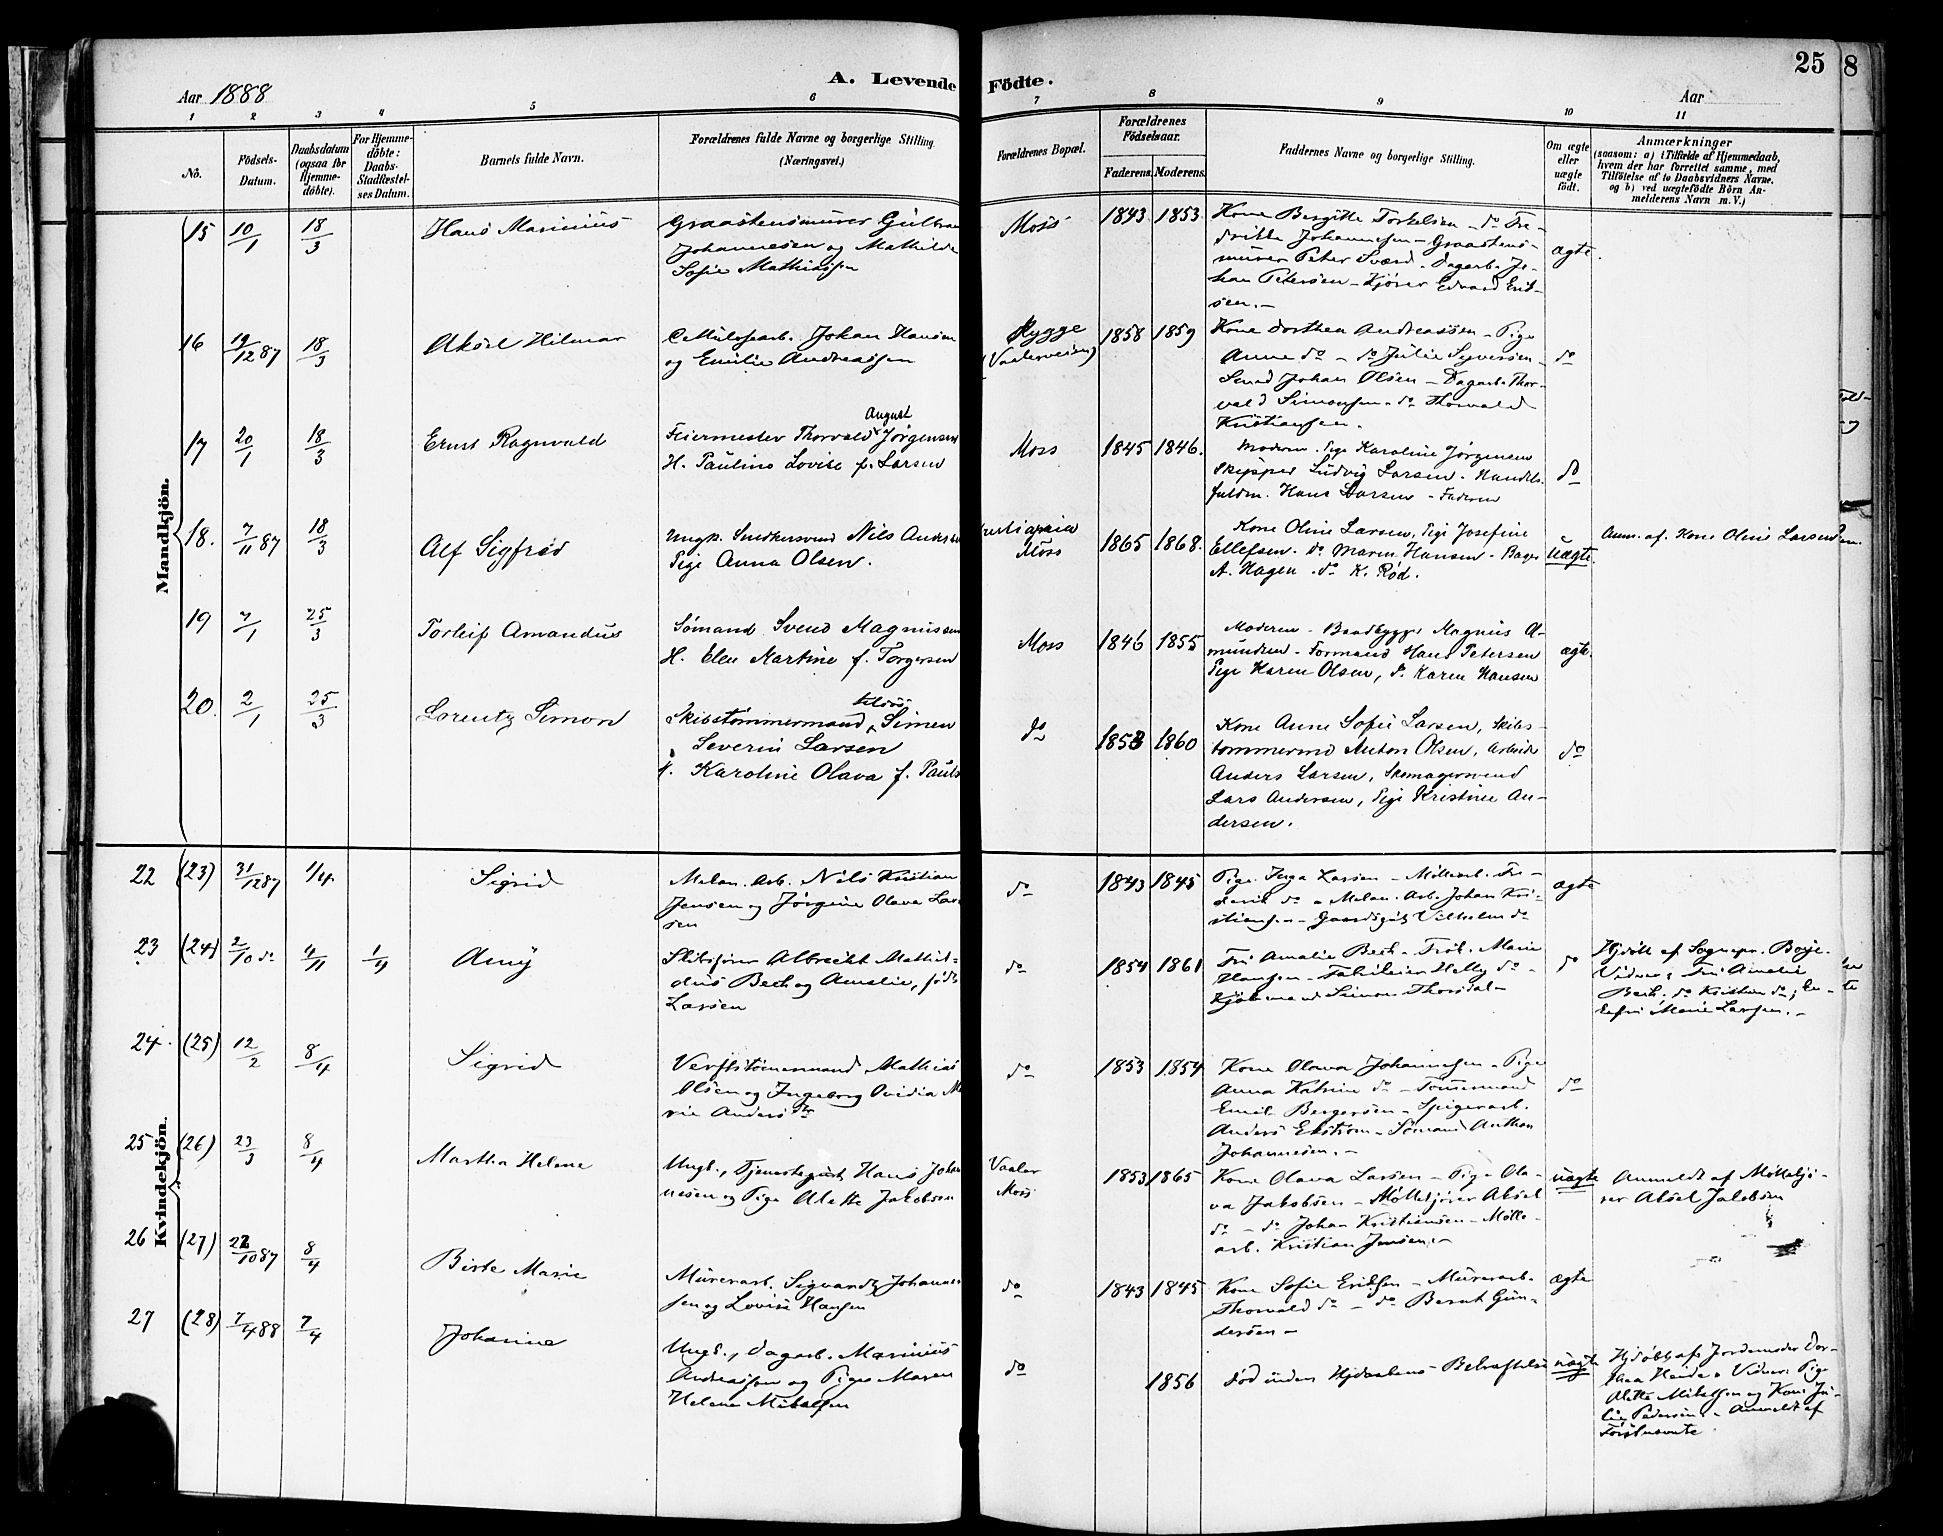 25
8
Aar 1888
A. Levende Födte.
Aar
1 2 3 4 5 6 7 8 9 10 11
Nô.
Födsels-
Datum.
Daabsdatum
(ogsaa for
Hjemme-
döbte).
For Hjemme-
döbte:
Daabs-
Stadfæstel-
ses Datum.
Barnets fulde Navn.
Forældrenes fulde Navne og borgerlige Stilling.
(Næringsvei.)
Forældrenes Bopæl.
Forældrenes
Födselsaar.
Faderens. Moderens.
Faddernes Navne og borgerlige Stilling.
Om ægte
eller
uægte
födt.
Anmærkninger
(saasom: a) i Tilfælde af Hjemmedaab,
hvem der har forrettet samme, med
Tilföielse af to Daabsvidners Navne,
og b) ved uægtefödte Börn An-
melderens Navn m. V.)
Mandkjön.
15 10/1 18/3 Hans Marinius
Graastensmurer Gulbran
Johannesen og Mathilde
Sofie Mathiassen
Moss 1843 1853
Kone Bergitte Torkelsen - do Fre-
drikke Johannesen - Graastens-
murer Peter Sværd - Dagarb. Jo-
han Petersen - Kjører Edvard Erik-
sen. -
ægte.
16 19/12 87 18/3 Aksel Hilmar
Cellulosearb. Johan Hansen
og Emilie Andreassen
Rygge
(Vaalerveien)
1858 1859
Kone Dorthea Andreassen - Pige
Anna do - do Julie Syversen -
Smed Johan Olsen - Dagarb. Thor-
vald Simonsen - do Thorvald
Kristiansen.
do
17 20/1 18/3 Ernst Ragnvald
Feiermester Thorvald August Jørgensen
H. Pauline Lovise f. Larsen
Moss 1845 1846.
Moderen. Pige Karoline Jørgensen
Skipper Ludvig Larsen. Handels
fuldm. Hans Larsen - Faderen
do
18. 7/11 87 18/3 Alf Sigfred
Ungk. Snedkersvend Nils Anders
Pige Anna Olsen.
Kristiania
Moss
1865 1868.
Kone Oline Larsen, Pige Josefine
Ellefsen. do Maren Hansen - Bager
A. Hagen. do K. Rød.
uægte.
Anm. af. Kone Oline Larsen
19 7/1 25/3 Torleif Amandus
Sømand Svend Magnussen
H. Elen Martine f. Torgersen
Moss 1846 1855
Moderen - Baadbygger Magnus A-
mundsen - Formand Hans Petersen
Pige Karen Olsen, P. Karen Hansen
ægte.
20. 2/1 25/3 Lorentz Simon
Skibstømmermand tilsøs Simen
Severin Larsen
H. Karoline Olava f. Pauls
do 1853 1860
Kone Anne Sofie Larsen, Skibs-
tømmermd Anton Olsen, Arbeider
Anders Larsen, Skomagersvend
Lars Andersen, Pige Kristine An-
dersen.
do
Kvindekjön.
22 (23) 31/12 87 1/4 Sigrid
Melan. Arb. Nils Kristian
Jensen og Jørgine Olava Lar
sen
do 1843 1845
Pige Inga Larsen - Møllearb. Fre-
derik do - Melan. Arb. Johan Kri-
stians. - Gaardsgut Vilhelm do
ægte
23 (24) 2/10 do 4/11 1/4 Amy
Skibsfører Albrecht Mathil-
dus Bech og Amalie, født
Larsen
do 1854 1861
Fru Amalie Bech - Frøk. Marie
Hansen - Fabrikeier Helly do -
Kjøbmand Simon Thorsdal -
do
Hjdøbt af Sognepr. Boje.
Vidner: Fru Amalie
Bech. do Kristian do; En-
kefru Marie Larsen. -
24. (25) 12/2 8/4 Sigrid
Verftstømmermand Mathias
Olsen og Ingeborg Ovidia Ma
rie Andersdtr
do 1853 1854
Kone Olava Johannesen - Pige
Anna Katrine do - Tømmermand
Emil Bergersen - Spigerarb.
Anders Ekstrøm - Sømand Anthon
Johannesen. -
do
25 (26) 23/3 8/4 Martha Helene
Ungk., Tjenestegut Hans Johan
nesen og Pige Alette Jakobsen
Vaaler
Moss
1853 1865
Kone Olava Larsen - Pige Ola-
va Jakobsen - Møllekjører Aksel
do - do Johan Kristiansen - Mølle-
arb. Kristian Jensen. -
uægte
Anmeldt af Møllekjø-
rer Aksel Jakobsen
26 (27) 22/10 87 8/4 Birte Marie
Murerarb. Sigvardt Johannes
sen og Lovise Hansen
do 1843 1845
Kone Sofie Eriksen - Murerarb.
Thorvald do - do Bernt Gun-
dersen -
ægte
27 (28) 7/4 88 7/4 Johanne
Ungk., Dagarb. Marinius
Andreassen og Pige Maren
Helene Mikalsen
do 1856
Død inden Hjdaabens Bekræftelse
uægte
Hjdøbt af Jordemoder Dor-
thea Heide - Vidner: Pige
Alette Mikalsen og Kone Ju-
lie Pedersen - Anmeldt af
Førstnævnte